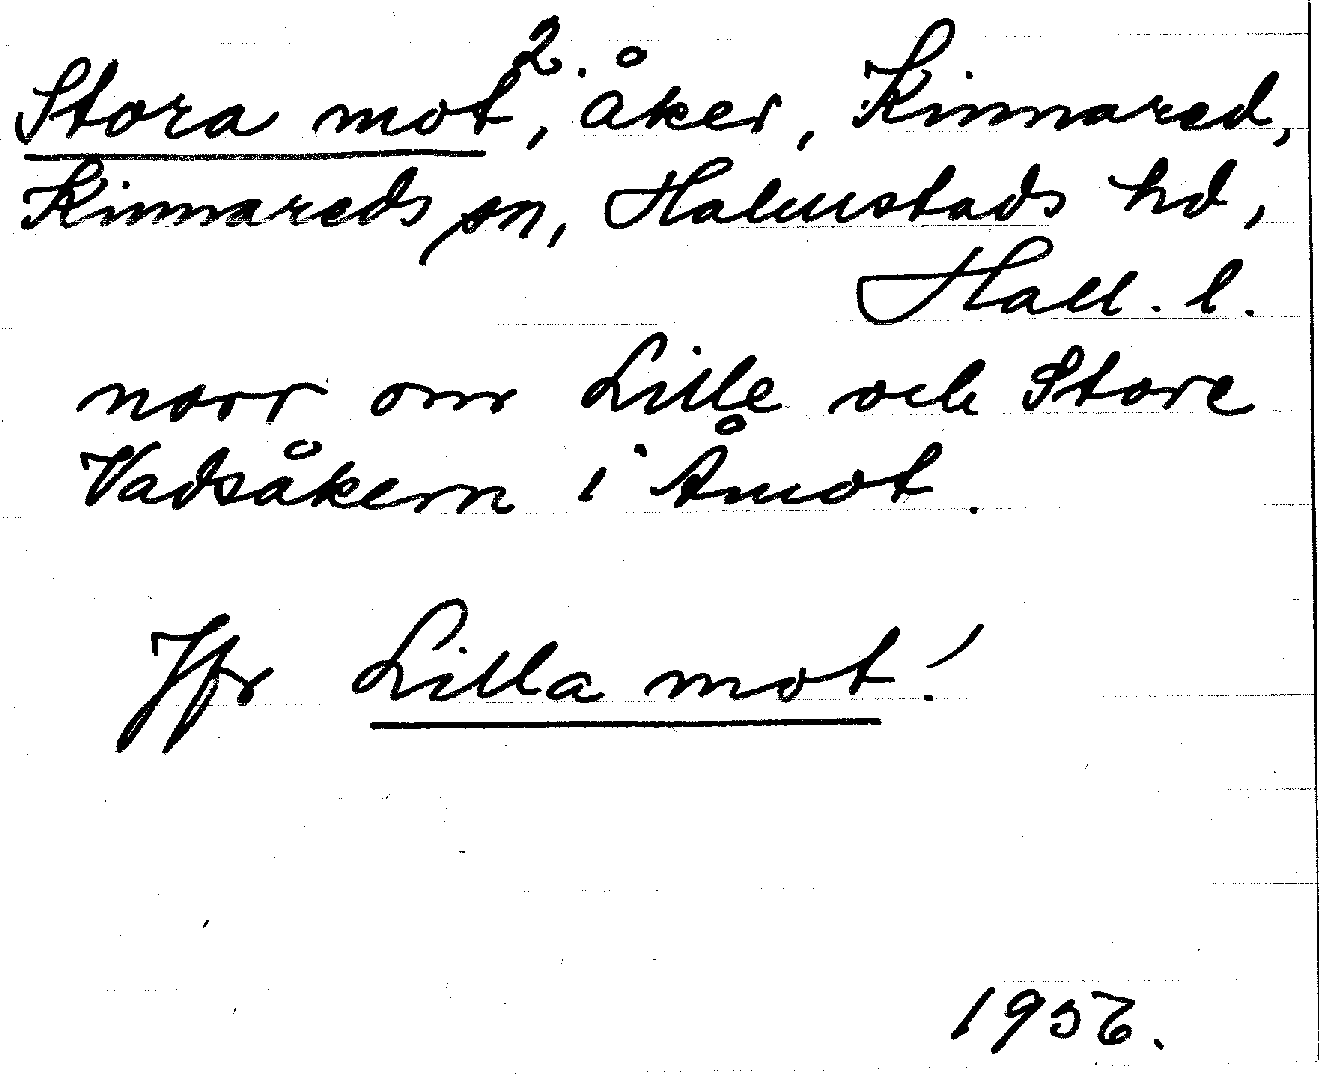 Stora mot 2., åker, Kinnared,
Kinnareds sn, Halmstads hd,
Hall. l.
norr om Lille och Store
Vadsåkern i Åmot.
Jfr Lilla mot!
1956.